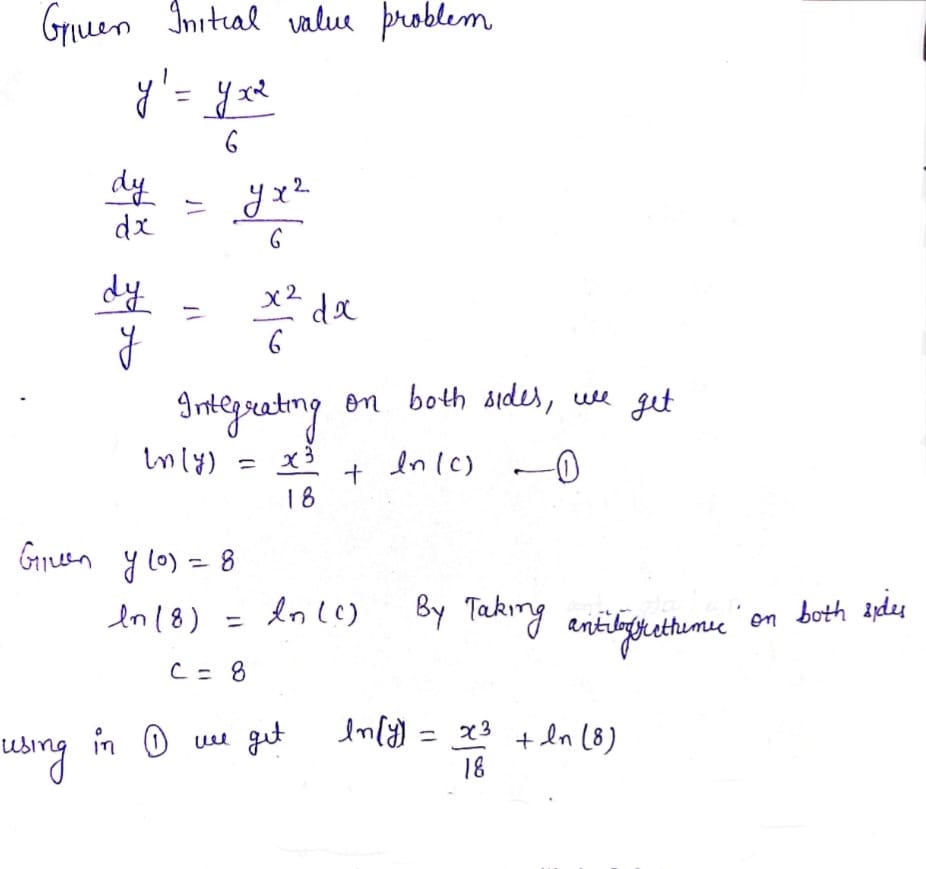 Given Initial value problem
y' = yx²/6
dy/dx = yx²/6
dy/y = x²/6 dx
Integrating on both sides, we get
ln(y) = x³/18 + ln(c) —①
Given y(0) = 8
ln(8) = ln(c) By Taking antilogrethemic on both sides
c = 8
using in ① we get ln(y) = x³/18 + ln(8)